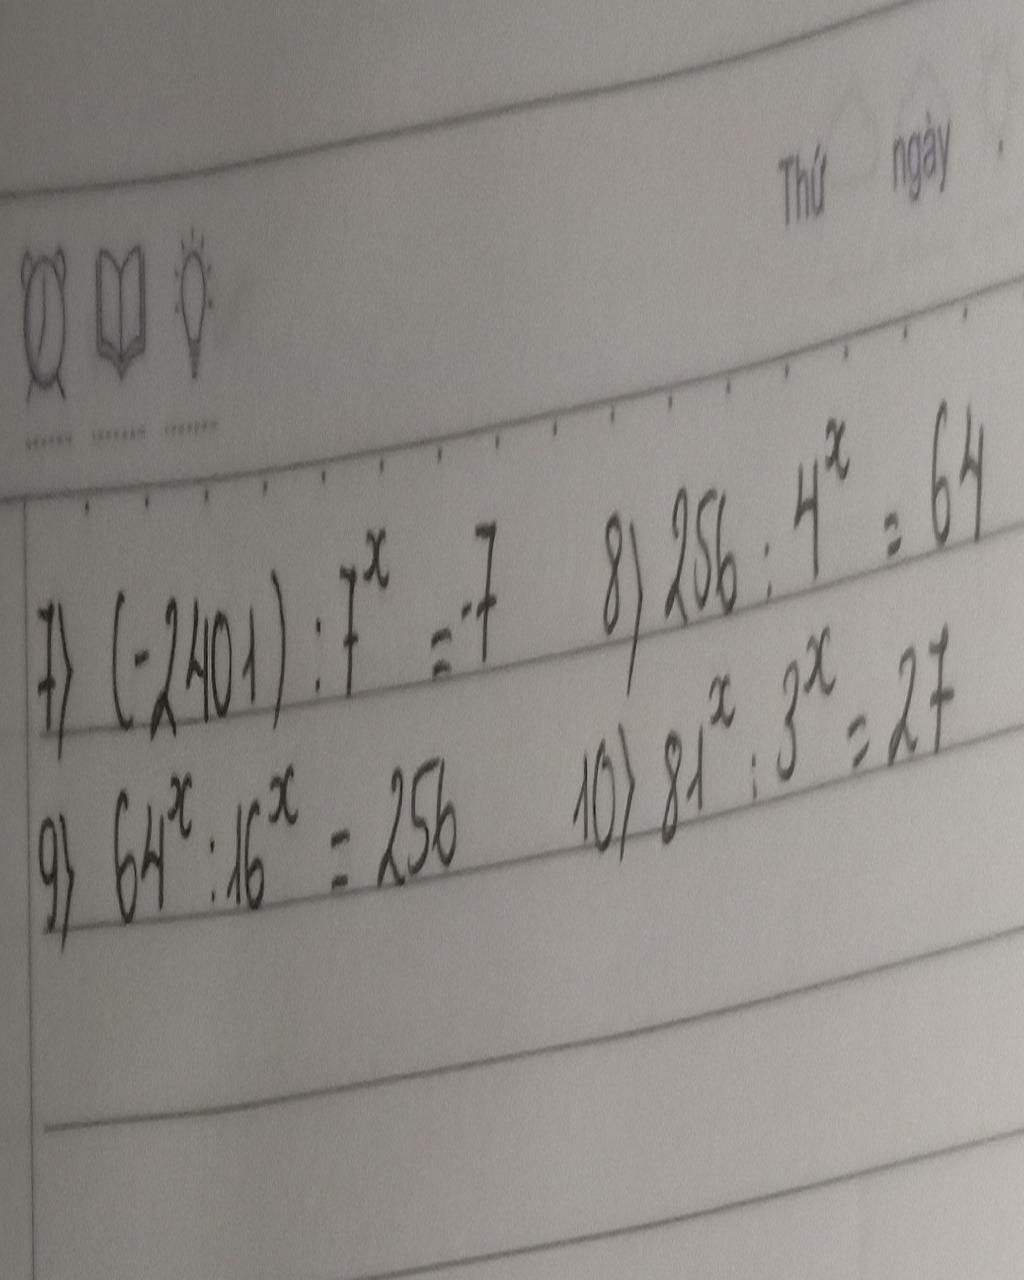 Thứ ngày
7) (-2401) : 7ˣ = -7 8) 256 : 4ˣ = 64
9) 64ˣ : 16ˣ = 256 10) 81ˣ : 3ˣ = 27